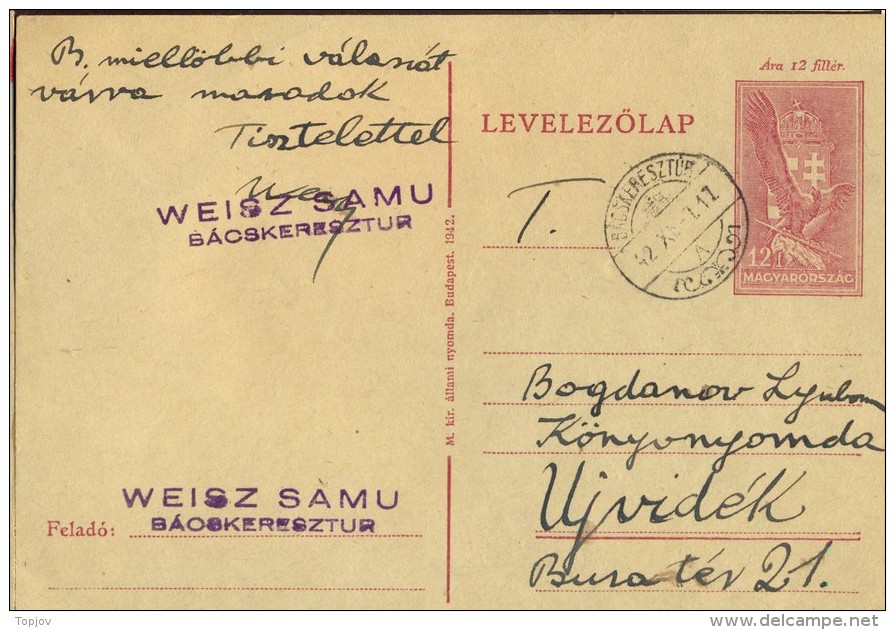 B. mielLőbbi válaszát
várva maradok
Tisztelettel
WEISZ SAMU
BÁCSKERESZTUR
M. kir. állami nyomda. Budapest. 1942.
Ára 12 fillér.
LEVELEZŐLAP
T.
BÁCSKERESZTÚR
42 XI -1.17
A
12 f
MAGYARORSZÁG
Bogdanov Lyubom
Könyvnyomda
Ujvidék
Buza tér 21.
WEISZ SAMU
Feladó: BÁCSKERESZTUR
Topjov
www.delcampe.net